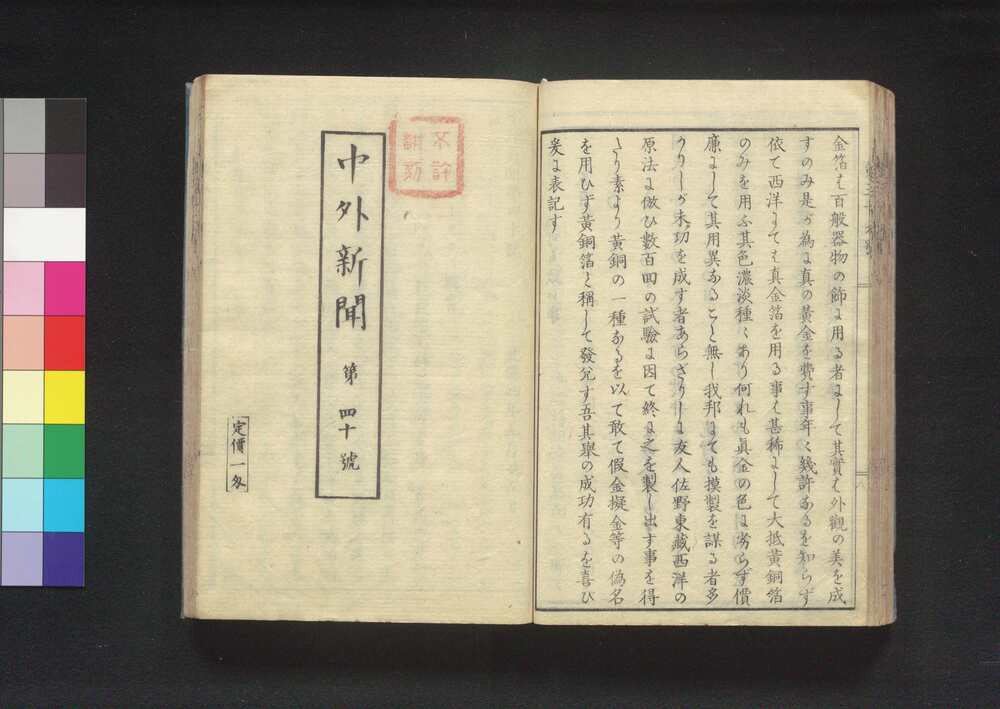 金箔は百般器物の飾に用る者にして其實は外觀の美を成
すのみ是が為に真の黃金を費す事年々幾許なるを知らず
依て西洋にても真金箔を用る事は甚稀にして大抵黃銅箔
のみを用ふ其色濃淡種々あり何れも眞金の色に劣らず價
廉にして其用異なること無し我邦にても摸製を謀る者多
かりしが未功を成す者あらざりしに友人佐野東藏西洋の
原法に倣ひ數百回の試驗に因て終に之を製し出す事を得
たり素より黃銅の一種なるを以て敢て假金擬金等の偽名
を用ひず黃銅箔と稱して發兌す吾其舉の成功有るを喜び
爰に表記す
不許
翻刻
中外新聞 第四十號
定價一匁